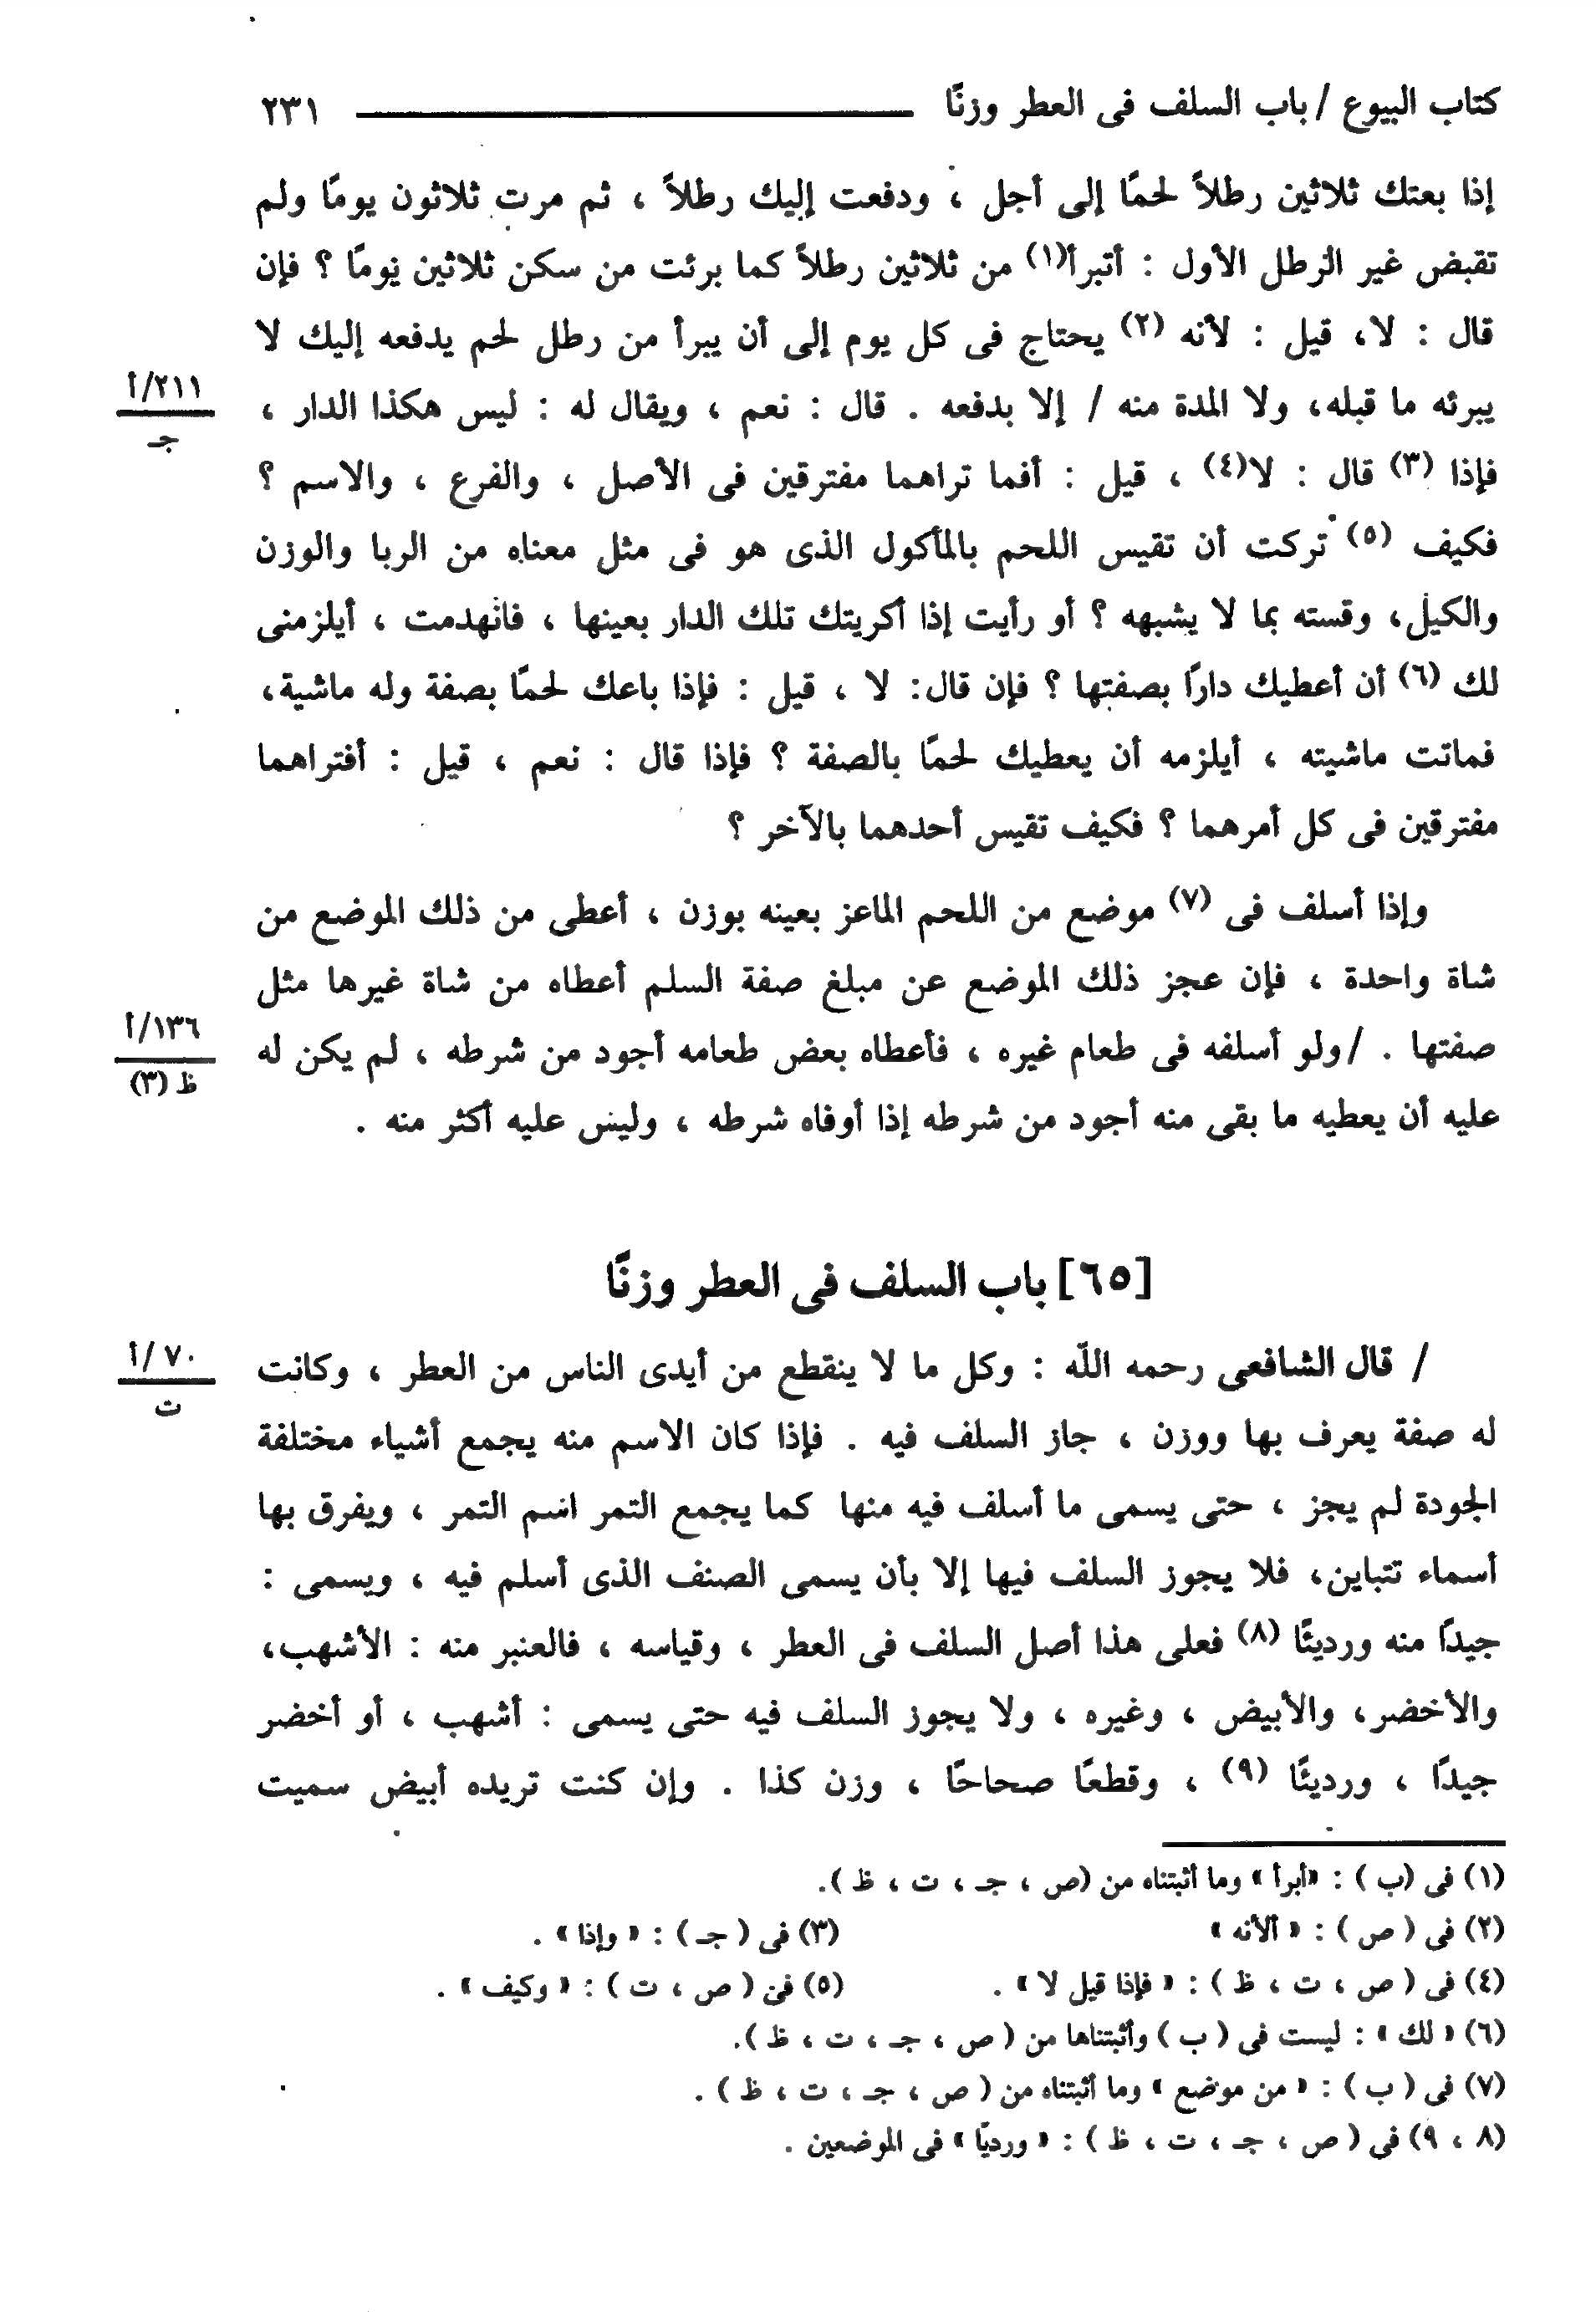 كتاب البيوع / باب السلف فى العطر وزنًا ٢٣١
إذا بعتك ثلاثين رطلاً لحمًا إلى أجل ، ودفعت إليك رطلاً ، ثم مرت ثلاثون يومًا ولم
تقبض غير الرطل الأول : أتبرأ(١) من ثلاثين رطلاً كما برئت من سكن ثلاثين يومًا ؟ فإن
قال : لا، قيل : لأنه (٢) يحتاج فى كل يوم إلى أن يبرأ من رطل لحم يدفعه إليك لا
يبرئه ما قبله، ولا المدة منه / إلا بدفعه . قال : نعم ، ويقال له : ليس هكذا الدار ،
٢١١/أ
جـ
فإذا (٣) قال : لا(٤) ، قيل : أفما تراهما مفترقين فى الأصل ، والفرع ، والاسم ؟
فكيف (٥) تركت أن تقيس اللحم بالمأكول الذى هو فى مثل معناه من الربا والوزن
والكيل، وقسته بما لا يشبهه ؟ أو رأيت إذا أكريتك تلك الدار بعينها ، فانهدمت ، أيلزمنى
لك (٦) أن أعطيك دارًا بصفتها ؟ فإن قال: لا ، قيل : فإذا باعك لحمًا بصفة وله ماشية،
فماتت ماشيته ، أيلزمه أن يعطيك لحمًا بالصفة ؟ فإذا قال : نعم ، قيل : أفتراهما
مفترقين فى كل أمرهما ؟ فكيف تقيس أحدهما بالآخر ؟
وإذا أسلف فى (٧) موضع من اللحم الماعز بعينه بوزن ، أعطى من ذلك الموضع من
شاة واحدة ، فإن عجز ذلك الموضع عن مبلغ صفة السلم أعطاه من شاة غيرها مثل
صفتها . /ولو أسلفه فى طعام غيره ، فأعطاه بعض طعامه أجود من شرطه ، لم يكن له
١٣٦/أ
ظ (٣)
عليه أن يعطيه ما بقى منه أجود من شرطه إذا أوفاه شرطه ، وليس عليه أكثر منه .
[٦٥] باب السلف فى العطر وزنًا
/ قال الشافعى رحمه اللّه : وكل ما لا ينقطع من أيدى الناس من العطر ، وكانت
٧٠ /أ
ت
له صفة يعرف بها ووزن ، جاز السلف فيه . فإذا كان الاسم منه يجمع أشياء مختلفة
الجودة لم يجز ، حتى يسمى ما أسلف فيه منها كما يجمع التمر اسم التمر ، ويفرق بها
أسماء تتباين، فلا يجوز السلف فيها إلا بأن يسمى الصنف الذى أسلم فيه ، ويسمى :
جيدًا منه ورديئًا (٨) فعلى هذا أصل السلف فى العطر ، وقياسه ، فالعنبر منه : الأشهب،
والأخضر، والأبيض ، وغيره ، ولا يجوز السلف فيه حتى يسمى : أشهب ، أو أخضر
جيدًا ، ورديئًا (٩) ، وقطعًا صحاحًا ، وزن كذا . وإن كنت تريده أبيض سميت
(١) فى (ب ) : «أبرأ » وما أثبتناه من (ص ، جـ ، ت ، ظ ).
(٢) فى ( ص ) : « ألأنه »
(٣) فى ( جـ ) : « وإذا » .
(٤) فى ( ص ، ت ، ظ ) : « فإذا قيل لا » .
(٥) فى ( ص ، ت ) : « وكيف » .
(٦) « لك » : ليست فى ( ب ) وأثبتناها من ( ص ، جـ ، ت ، ظ ).
(٧) فى ( ب ) : « من موضع » وما أثبتناه من ( ص ، جـ ، ت ، ظ ) .
(٨ ، ٩) فى ( ص ، جـ ، ت ، ظ ) : « ورديًا » فى الموضعين .